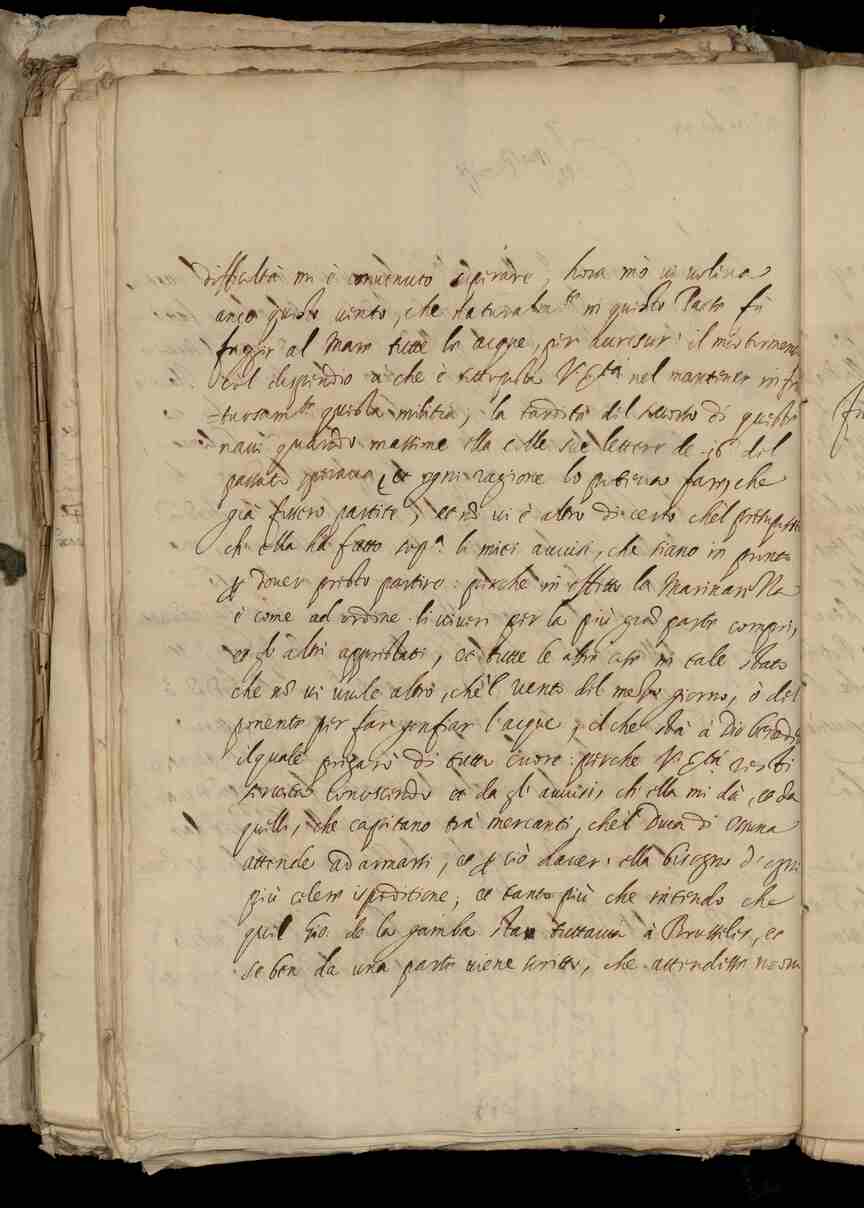 difficoltà mi è convenuto superare, hora mò vi voleva
anco questo vento, che naturalm.te in questo Paese fà
fuggir al Mare tutte le acque, per accrescer il mio tormento
col dispendio à che è V. Ecc.tà nel mantener infrut
=tuosam.te questa militia, la tardità del di queste
navi quando massime ella colle sue lettere de 16 del
passato sperava, et ogni ragione lo poteva fare, che
già fussero partite, et nõ vi è altro di certo che'l presuposto
ch'ella ha fatto sop.a li miei avvisi, che siano in pronto
ꝑ dover presto partire: perche in effetto la Marinarezza
è come ad ordine li viveri per la più grãd parte compri,
et gli altri appuntati, et tutte le altre cose in tale stato
che nõ vi vuole altro, che'l vento del mezo giorno, ò del
ponente per far gonfiar l'acque, il che stà à Dio bened.o
il quale pregarò di tutto cuore: perche V. Ecc.tà resti
servita conoscendo et da gl'avvisi, ch'ella mi dà, et da
quelli, che capitano trà mercanti, che'l Duca di Ossuna
attende ad armarsi, et ꝑ ciò haver ella bisogno d'ogni
più celere ispeditione, et tanto più che intendo che
quel Gio. de la gamba sta tuttavia à Brusseles, et
se ben da una parte viene scritto, che attendesse